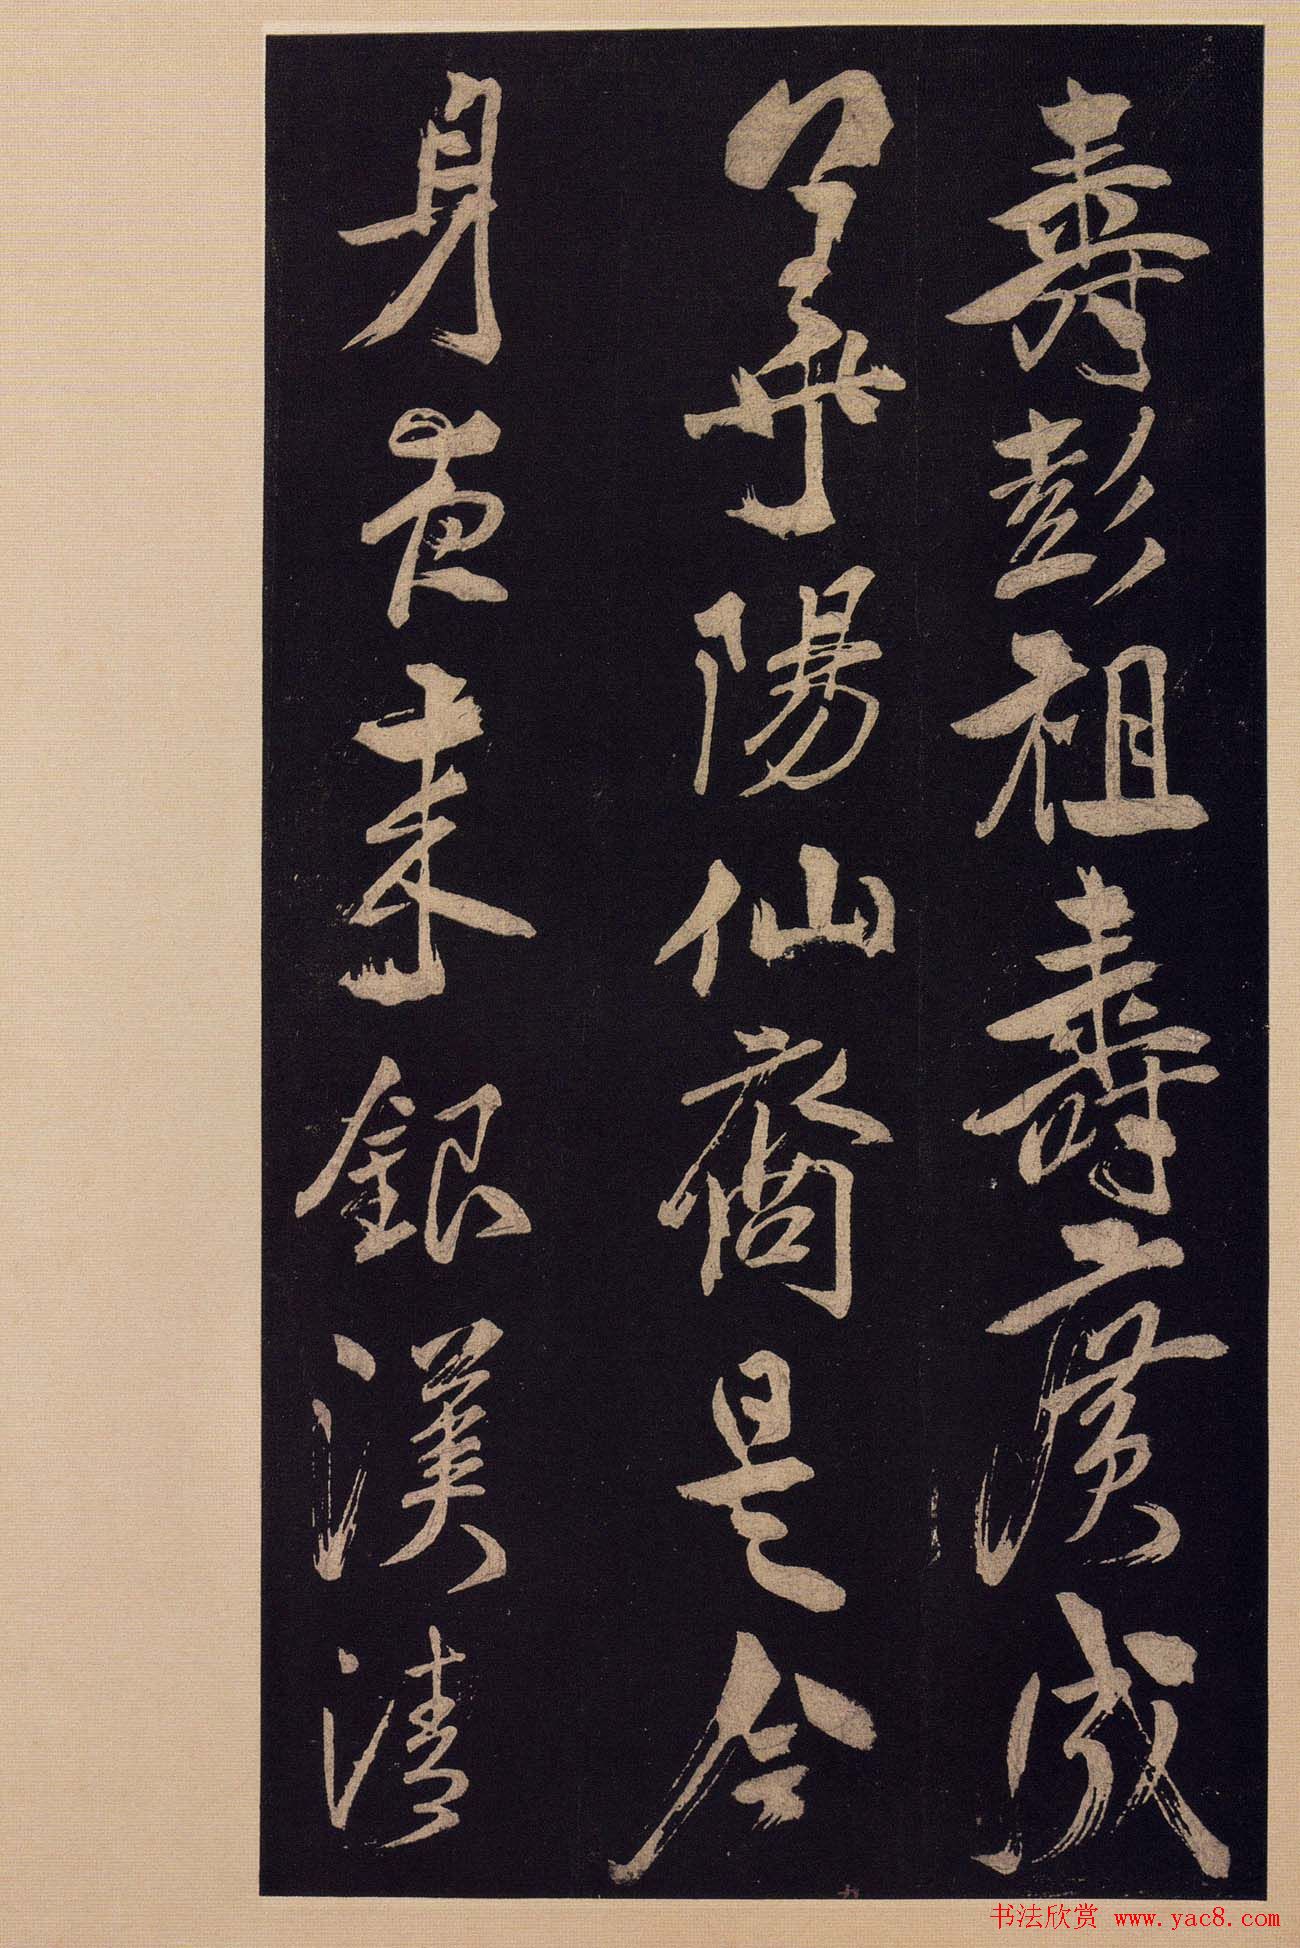 壽彭祖壽廣成
華陽仙裔是今
身夜來銀漢清
书法欣赏 www.yac8.com